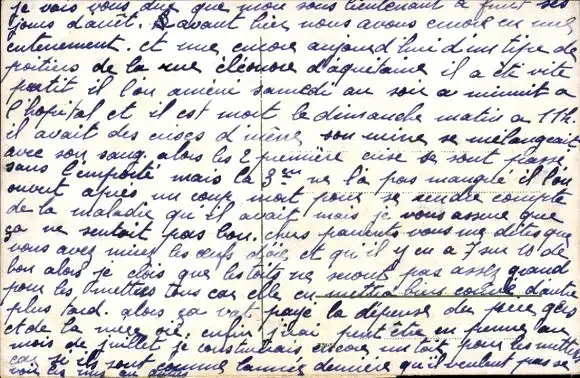 je vais vous dire que mon sous lieutenant a finit ses
jours d'arrêt. avant hier nous avons encore eu une
enterement. et une encore aujourd'hui d'un tipe de
poitiers de la rue éléonore d'aquitaine il a été vite
partit il l'on amené samedi au soir a minuit a
l'hopital et il est mort le dimanche matin a 11h.
il avait des crises d'   son urine se mélangeait
avec son sang. alors les 2 première crise se sont passé
sans l'emporté mais la 3eme ne l'a pas manqué il l'on
ouvert après un coup mort pour se rendre compte
de la maladie qu'il avait mais je vous assure que
ça ne sentait pas bon. chers parents vous me dites que
vous avez mirez les oeufs d'oie et qu'il y en a 7 sur 10 de
bon alors je crois que les toits ne seront pas assez grand
pour les mettres tous car elle en mettra bien couver d'autre
plus tard. alors ça va payé la dépense du père gars
et de la mere oie, enfin j'irai peut être en perme au
mois de juillet je construirais encore un toit pour les mettre
car si ils sont comme l'année dernière qu'il veulent pas se
voir les uns au